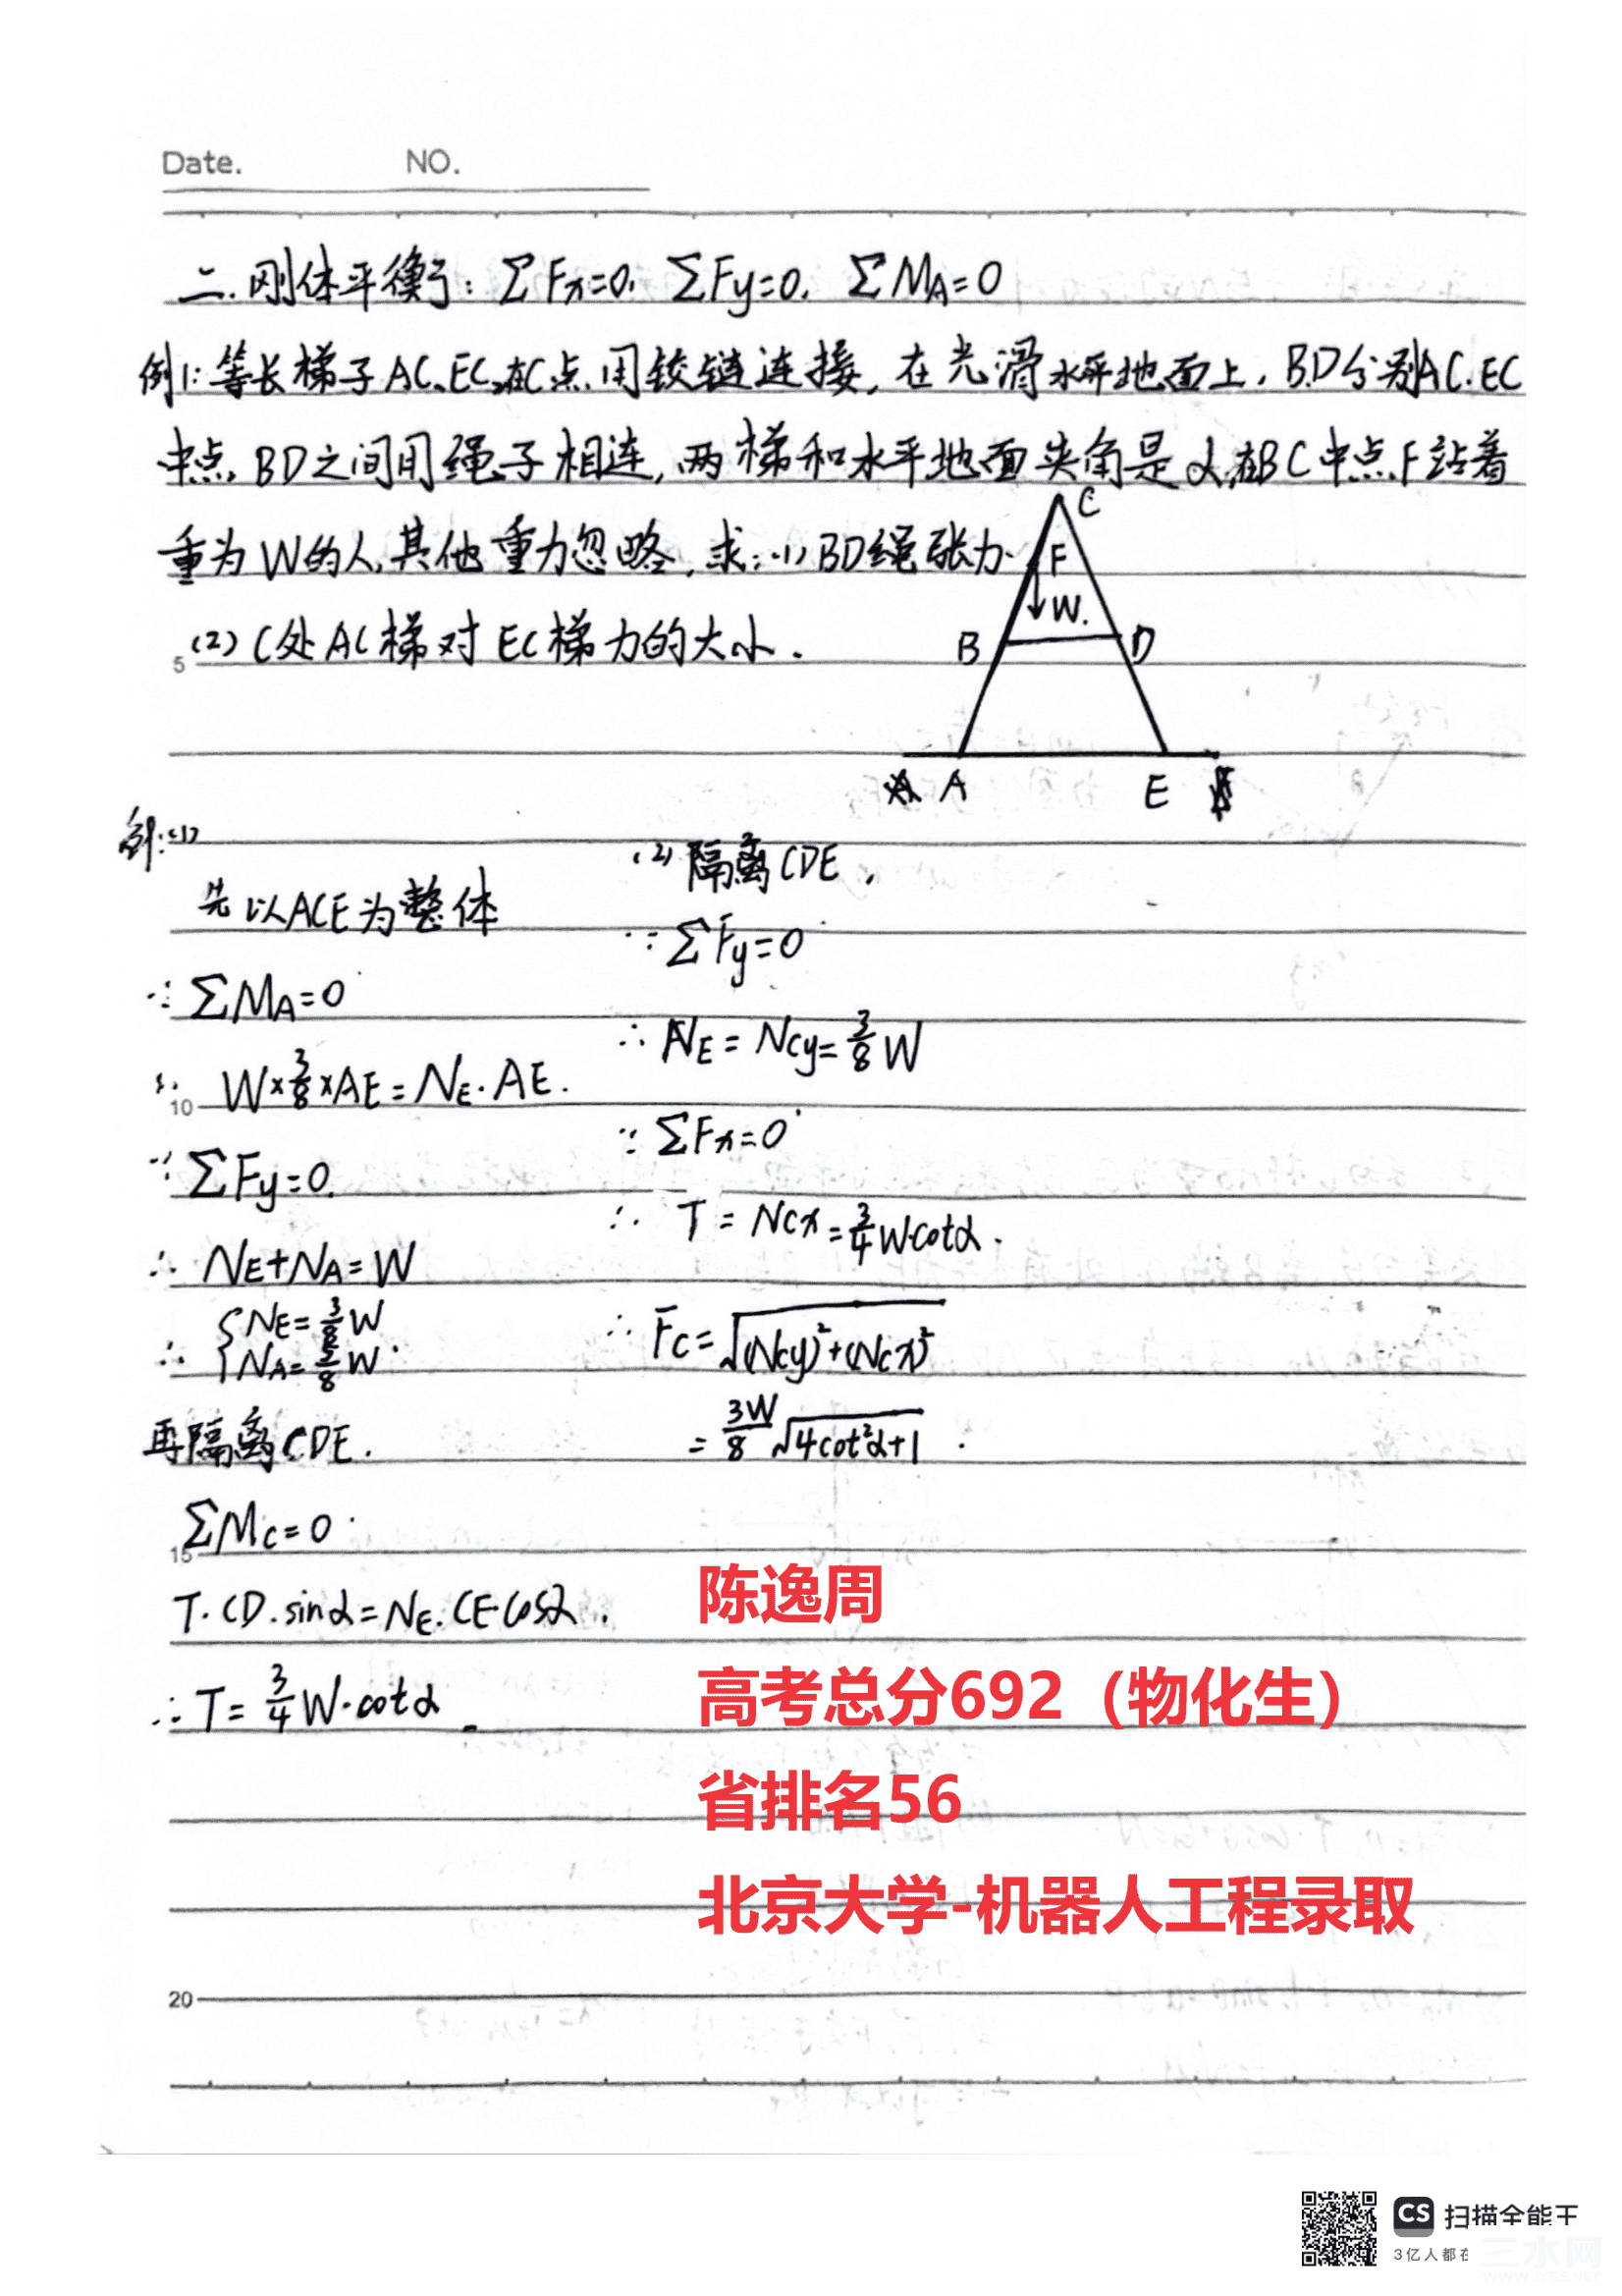 Date. NO.
二.刚体平衡: ΣFx=0. ΣFy=0. ΣMA=0
例1:等长梯子AC、EC,在C点用铰链连接,在光滑水平地面上,B.D分别AC.EC
中点,BD之间用绳子相连,两梯和水平地面夹角是α,在BC中点F站着
重为W的人,其他重力忽略,求:(1)BD绳张力.
5 (2) C处AC梯对EC梯力的大小.
C
F
W.
B D
A E
解:(1)
先以ACE为整体
∵ ΣMA=0
∴ W×3/8×AE=NE·AE.
10
∵ ΣFy=0.
∴ NE+NA=W
∴ {NE=3/8W
NA=5/8W.
再隔离CDE.
ΣMC=0
15
T·CD·sinα=NE·CE·cosα.
∴T=3/4W·cotα
(2)隔离CDE,
∵ ΣFy=0
∴ NE=NCy=3/8W
∵ ΣFx=0
∴ T=NCx=3/4W·cotα.
∴ FC=√((NCy)²+(NCx)²)
=3W/8√(4cot²α+1).
陈逸周
高考总分692(物化生)
省排名56
北京大学-机器人工程录取
20
CS 扫描全能王
3亿人都在
三水网